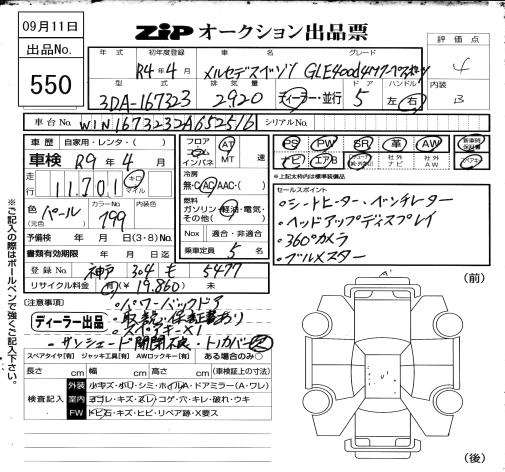 09月11日
ZiP オークション出品票
出品No.
550
年式 初年度登録 車名 グレード 評価点
R4年4月 メルセデスベンツ GLE400d4マチックスポーツ 4
型式 排気量 ドア ハンドル 内装
3DA-167323 2920 ディーラー・並行 5 左・右 B
車台No. W1N1673232A652516 シリアルNo.
車歴 自家用・レンタ・( )
車検 R9年4月
走行 11,701 キロ マイル
色(元色) パール カラーNo. 799 内装色
予備検 年 月 日(3・8)No.
書類有効期限 年 月 日迄
登録No. 神戸 304 も 5477
リサイクル料金 有(¥19,860) 未
フロア コラム インパネ AT MT 速
冷房 無・C・AC・AAC・( )
燃料 ガソリン・軽油・電気・その他( )
Nox 適合・非適合
乗車定員 5 名
PS PW SR 革 AW 新車時保証書
ナビ エアB 社外ナビ 社外AW スペアキー
※上記太枠内は標準装備品
セールスポイント
・シートヒーター・ベンチレーター
・ヘッドアップディスプレイ
・360°カメラ
・ブルメスター
(注意事項)
・パワーバックドア
ディーラー出品
・取説・保証書あり
・スペアキー×1
・サンシェード開閉不良・トノカバー
スペアタイヤ[有] ジャッキ工具[有] AWロックキー[有] ある場合のみ○
長さ cm 幅 cm 高さ cm (車検証上の寸法)
検査記入
外装 小キズ・小凹・シミ・ホイルA・ドアミラー(A・ワレ)
室内 ヨゴレ・キズ・スレ・コゲ・穴・キレ・破れ・ウキ
FW トビ石・キズ・ヒビ・リペア跡・X要ス
※ご記入の際はボールペンで強くご記入下さい。
(前)
(後)